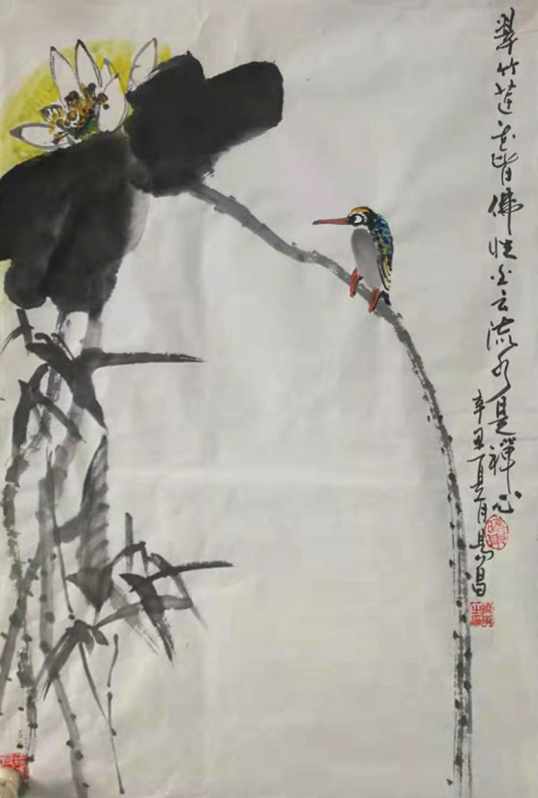 翠竹莲花皆佛性白云流水是禪心
辛丑夏月